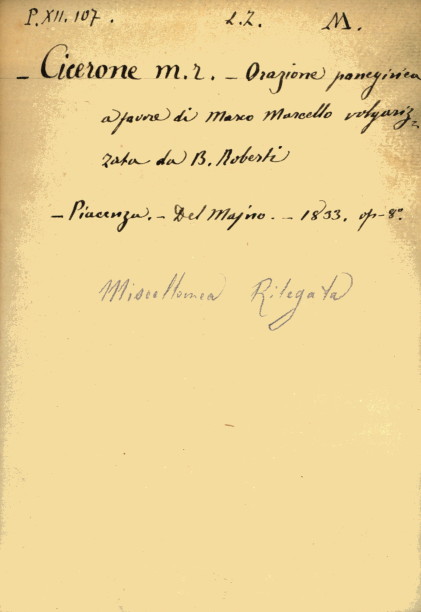 P.XII.107. L.Z. M.
- Cicerone m.t. - Orazione panegirica
a favore di Marco Marcello volgariz=
zata da B. Roberti
- Piacenza. - Del Majno. - 1833. op-8°.
Miscellanea Rilegata